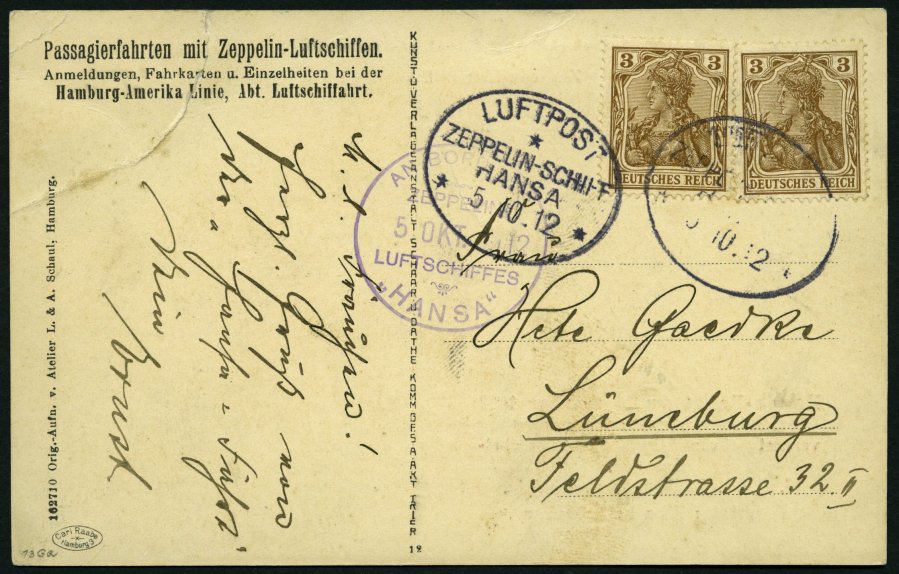 Passagierfahrten mit Zeppelin-Luftschiffen.
Anmeldungen, Fahrkarten u. Einzelheiten bei der
Hamburg-Amerika Linie, Abt. Luftschiffahrt.
162710 Orig.-Aufn. v. Atelier L. & A. Schaul, Hamburg.
Herzl. Gruß von
der „Hansa-Fahrt“
Dein Ernst
KUNST- U. VERLAGSANSTALT SCHAAR & DATHE KOMM.-GES. A. AKT. TRIER
12
AN BORD
ZEPPELIN
5. OKT. 12
LUFTSCHIFFES
„HANSA“
LUFTPOST
ZEPPELIN-SCHIFF
HANSA
5 10.12
3 3
DEUTSCHES REICH
3 3
DEUTSCHES REICH
5 10.12
Frau
Hete Gaedke
Lüneburg
Feldstrasse 32 II
Carl Raabe
Hamburg 3
13Ga